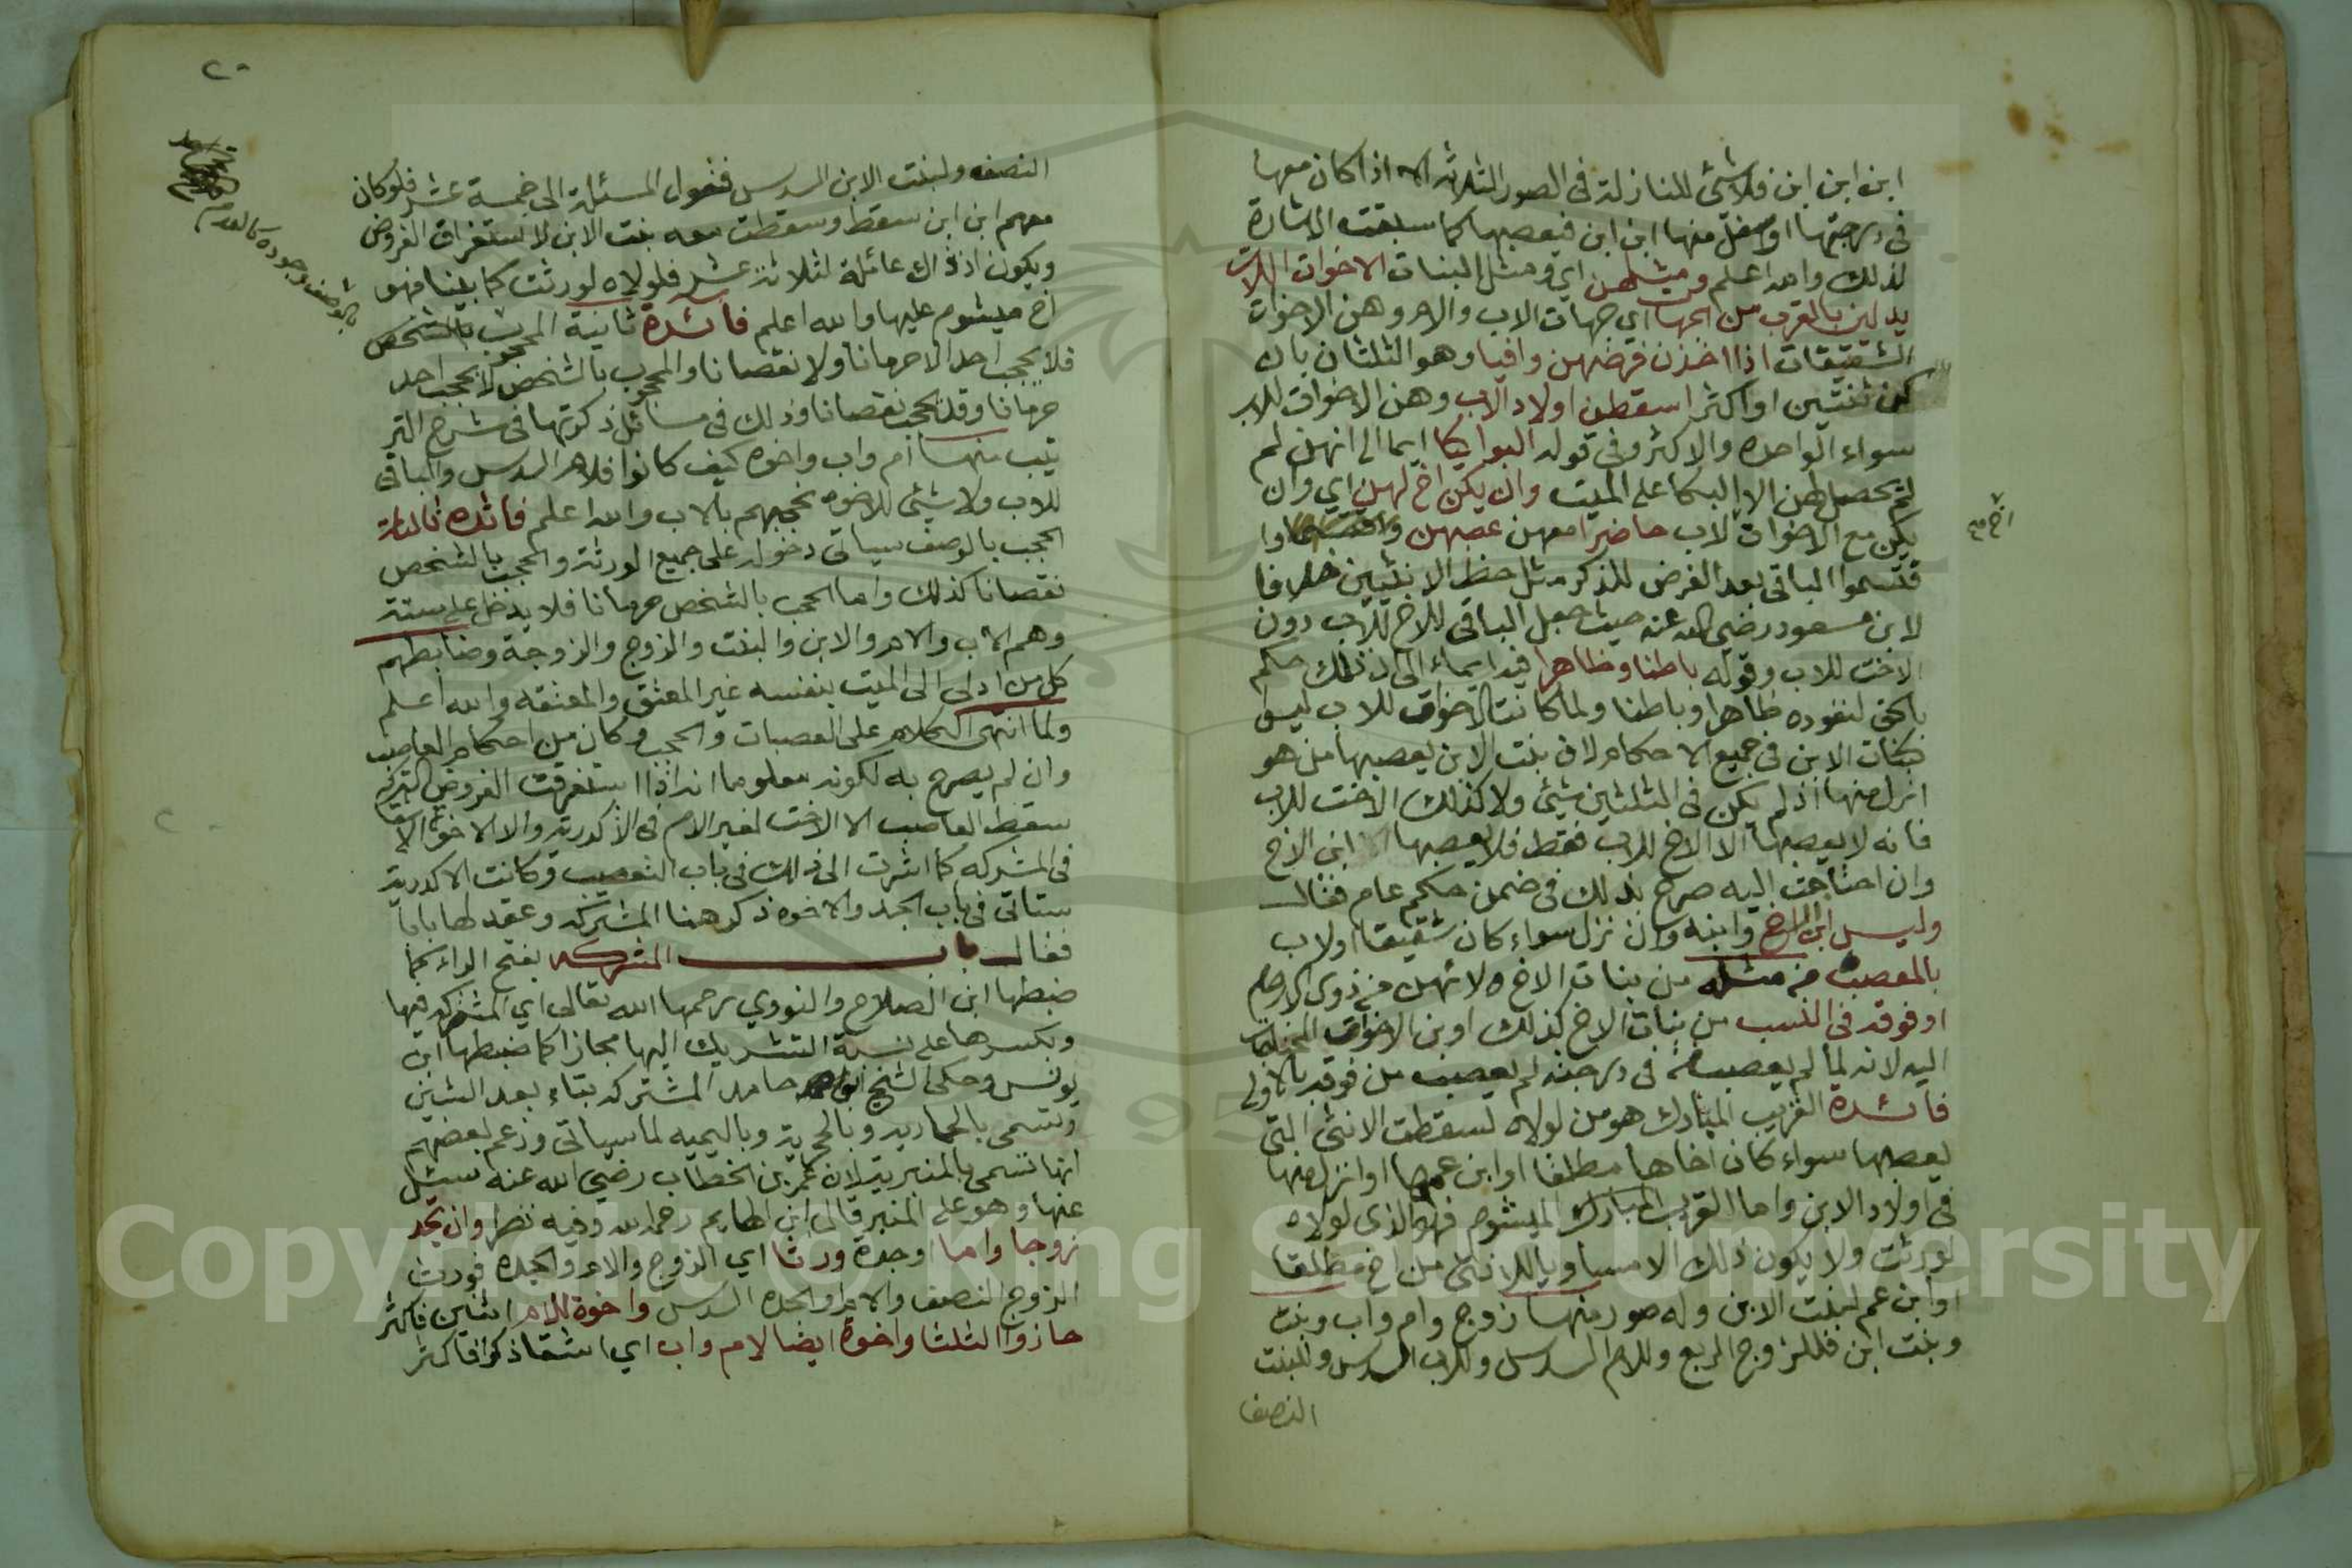 ابن ابن ابن فلا شئ للنازلة فى الصور الثلاثه الا اذا كان معها
فى درجتها او اسفل منها ابن ابن فيعصبها كما سبقت الاشارة
لذلك والله اعلم ومثلهن اي ومثل البنات الاخوات اللات
يدلين بالقرب من الجهات اي جهات الاب والام وهن الاخوات
الشقيقات اذا اخذن فرضهن وافيا وهو الثلثان بان
كن ثنتين او اكثر اسقطن اولاد الاب وهن الاخوات للاب
سواء الواحده والاكثر وفى قوله البواكيا ايما الى انهن لم
لم يحصل لهن الا البكا على الميت وان يكن اخ لهن اي وان
يكن مع الاخوات لاب حاضرا معهن عصبهن وا
قتسموا الباقى بعد الفرض للذكر مثل حظ الانثيين خلافا
لابن مسعود رضي الله عنه حيث جعل الباقى للاخ للاب دون
الاخت للاب وقوله باطنا وظاهرا فيه ايماء الى ان ذلك حكم
بالحق لنفوذه ظاهرا وباطنا ولما كانت الاخوات للاب ليس
كبنات الابن فى جميع الاحكام لان بنت الابن يعصبها من هو
انزل منها اذ لم يكن فى الثلثين شئ ولا كذلك الاخت للاب
فانه لا يعصبها الا الاخ للاب فقط فلا يعصبها ابن الاخ
وان احتاجت اليه صرح بذلك فى ضمن حكم عام فقال
وليس ابن الاخ وابنه وان نزل سواء كان شقيقا او لاب
بالمعصب من مثله من بنات الاخ لانهن من ذوى الارحام
او فوقه فى النسب من بنات الاخ كذلك او بن الاخوات المحتاجات
اليه لانه لما لم يعصب من فى درجته لم يعصب من فوقه بالاولى
فائدة القريب المبارك هو من لولاه لسقطت الانثى التى
يعصبها سواء كان اخاها مطلقا او ابن عمها او انزل منها
فى اولاد الابن واما القريب المبارك الميشوم فهو الذى لولاه
لورثت ولا يكون ذلك الا مساويا للانثى من اخ مطلقا
او ابن عم لبنت الابن وله صور منها زوج وام واب وبنت
وبنت ابن فللزوج الربع وللام السدس وللاب السدس وللبنت
النصف
٢٠
النصف ولبنت الابن السدس فتعول المسئلة الى خمسة عشر فلو كان
معهم ابن ابن سقط وسقطت معه بنت الابن لاستغراق الفروض
ويكون اذ ذاك عائلة لثلاثة عشر فلولاه لورثت كما بينا فهو
اخ ميشوم عليها والله اعلم فائدة ثانية المحجوب بالشخص
فلا يحجب احدا لا حرمانا ولا نقصانا والمحجوب بالشخص لا يحجب احد
حرمانا وقد يحجب نقصانا وذلك فى مسائل ذكرتها فى شرح التر
تيب منها ام واب واخوه كيف كانوا فللام السدس والباقى
للاب ولا شئ للاخوه لحجبهم بالاب والله اعلم فائده ثالثة
الحجب بالوصف سياتى دخوله على جميع الورثة والحجب بالشخص
نقصانا كذلك واما الحجب بالشخص حرمانا فلا يدخل على ستة
وهم الاب والام والابن والبنت والزوج والزوجة وضابطهم
كل من ادلى الى الميت بنفسه غير المعتق والمعتقه والله اعلم
ولما انتهى الكلام على العصبات والحجب وكان من احكام العاصب
وان لم يصرح به لكونه معلوما انه اذا استغرقت الفروض التركة
سقط العاصب الا الاخت لغير الام فى الاكدرية والا الاخوة الاشقا
فى المشركه كما اشرت الى ذلك فى باب التعصيب وكانت الاكدرية
ستاتى فى باب الجد والاخوه ذكر هنا المشتركه وعقد لها بابا
فقال باب المشركه بفتح الراء كما
ضبطها ابن الصلاح والنووي رحمهما الله تعالى اي المشترك فيها
وبكسرها على نسبة التشريك اليها مجازا كما ضبطها ابن
يونس وحكى الشيخ ابو حامد المشتركه بتاء بعد الشين
وتسمى بالحمارية وبالحجرية وباليميه لما سياتى وزعم بعضهم
انها تسمى بالمنبرية لان عمر بن الخطاب رضي الله عنه سئل
عنها وهو على المنبر قال ابن الهايم رحمه الله وفيه نظر وان تجد
زوجا واما او جدة ورثا اي الزوج والام والجده فورث
الزوج النصف والام او الجده السدس واخوة للام اثنين فاكثر
حازوا الثلثا واخوة ايضا لام واب اي اشقا ذكرا فاكثر
بالوصف وجوده كالعدم